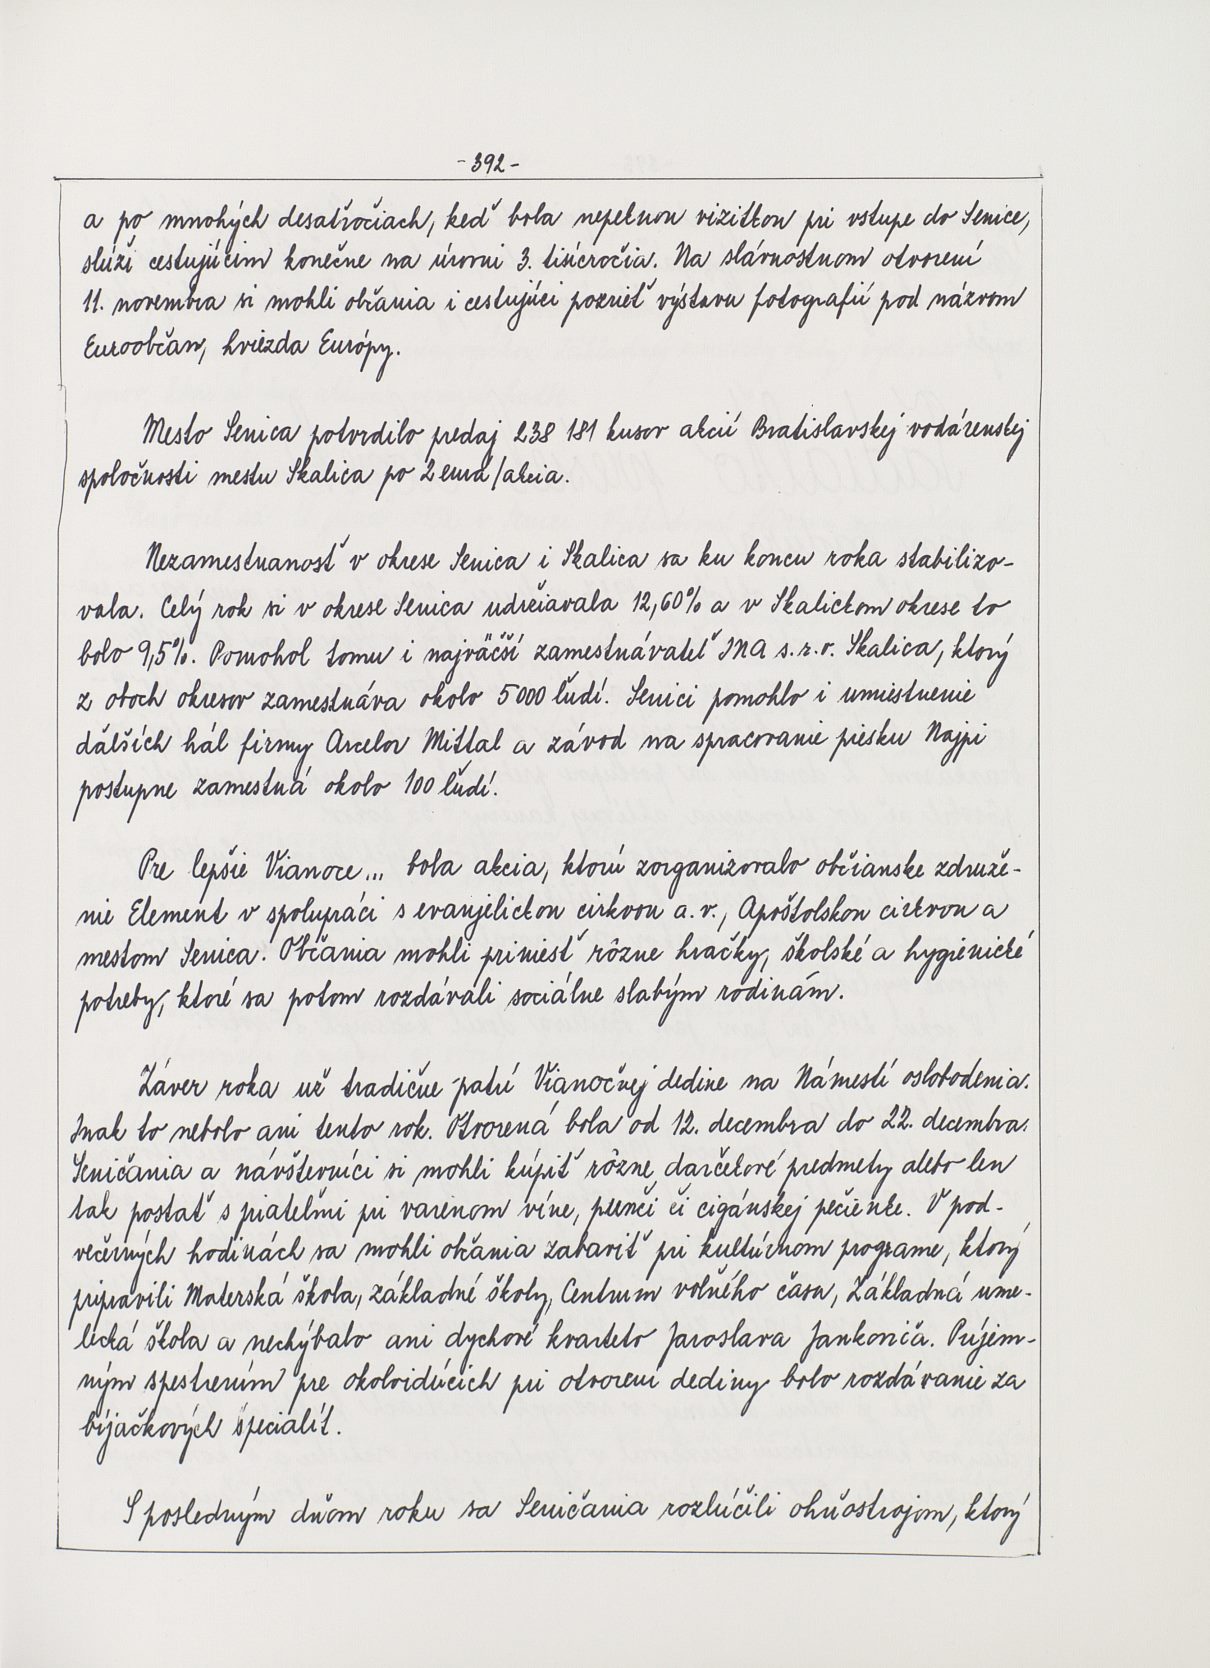 - 392 -
a po mnohých desaťročiach, keď bola nepeknou vizitkou pri vstupe do Senice,
slúži cestujúcim konečne na úrovni 3. tisícročia. Na slávnostnom otvorení
11. novembra si mohli občania i cestujúci pozrieť výstavu fotografií pod názvom
Euroobčan, hviezda Európy.
Mesto Senica potvrdilo predaj 238 181 kusov akcií Bratislavskej vodárenskej
spoločnosti mestu Skalica po 2 eurá/akcia.
Nezamestnanosť v okrese Senica i Skalica sa ku koncu roka stabilizo-
vala. Celý rok si v okrese Senica udržiavala 12,60% a v Skalickom okrese to
bolo 9,5%. Pomohol tomu i najväčší zamestnávateľ INA s.r.o. Skalica, ktorý
z oboch okresov zamestnáva okolo 5 000 ľudí. Senici pomohlo i umiestnenie
ďalších hál firmy Arcelor Mittal a závod na spracovanie piesku Najpi
postupne zamestná okolo 100 ľudí.
Pre lepšie Vianoce... bola akcia, ktorú zorganizovalo občianske združe-
nie Element v spolupráci s evanjelickou cirkvou a.v., Apoštolskou cirkvou a
mestom Senica. Občania mohli priniesť rôzne hračky, školské a hygienické
potreby, ktoré sa potom rozdávali sociálne slabým rodinám.
Záver roka už tradične patrí Vianočnej dedine na Námestí oslobodenia.
Inak to nebolo ani tento rok. Otvorená bola od 12. decembra do 22. decembra.
Seničania a návštevníci si mohli kúpiť rôzne darčekové predmety alebo len
tak postáť s priateľmi pri varenom víne, punči či cigánskej pečienke. V pod-
večerných hodinách sa mohli občania zabaviť pri kultúrnom programe, ktorý
pripravili Materská škola, základné školy, Centrum voľného času, Základná ume-
lecká škola a nechýbalo ani dychové kvarteto Jaroslava Jankoviča. Príjem-
ným spestrením pre okoloidúcich pri otvorení dediny bolo rozdávanie za
bíjačkových špecialít.
S posledným dňom roku sa Seničania rozlúčili ohňostrojom, ktorý